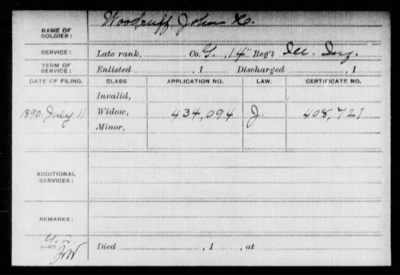 NAME OF SOLDIER: Woodruff, John
SERVICE: Late rank, Co. G, 14" Reg't Ill. Inf.
TERM OF SERVICE: Enlisted , 1 Discharged , 1
DATE OF FILING. CLASS APPLICATION NO. LAW. CERTIFICATE NO.
Invalid,
1890 July 11 Widow, 434,094 J. 408,721
Minor,
ADDITIONAL SERVICES:
REMARKS:
Died , 1 , at